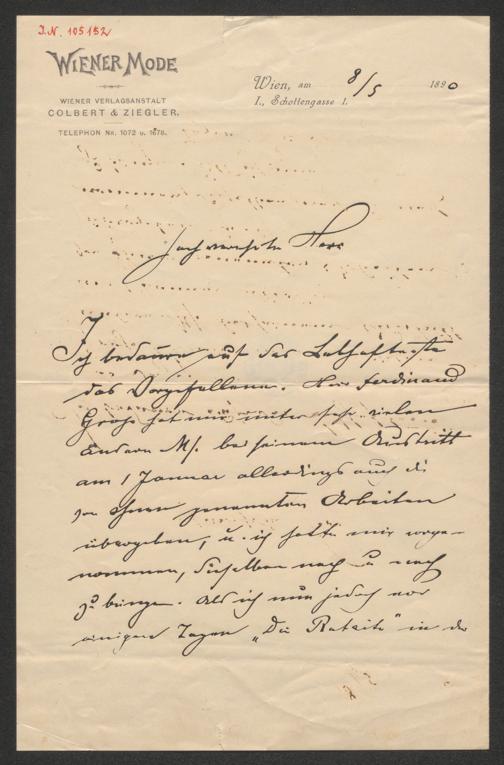 J.N. 105152
WIENER MODE
WIENER VERLAGSANSTALT
COLBERT & ZIEGLER.
TELEPHON NR. 1072 u. 1678.
Wien, am 8/5 1890
I., Schottengasse 1.
Hochverehrter Herr
Ich bedaure auf das Lebhafteste
das Vorgefallene. Herr Ferdinand
Groß hat mir unter sehr vielen
andern M/. bei seinem Austritt
am 1 Januar allerdings auch die
von Ihnen genannten Arbeiten
übergeben, u. ich hatte mir vorge-
nommen, dieselben nach u nach
zu bringen. Als ich nun jedoch vor
einigen Tagen „Die Rakete" in der